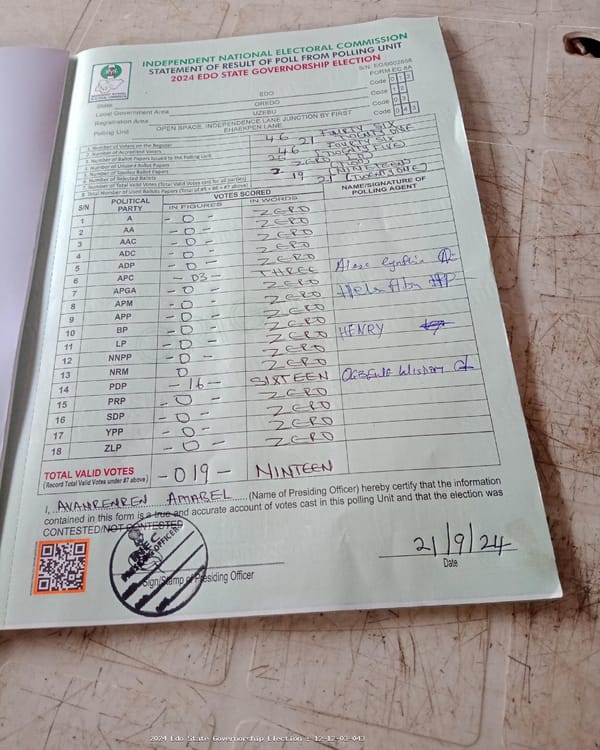 INDEPENDENT NATIONAL ELECTORAL COMMISSION
STATEMENT OF RESULT OF POLL FROM POLLING UNIT
2024 EDO STATE GOVERNORSHIP ELECTION
FORM EC 8A
State EDO Code 0 1 2
Local Government Area OREDO Code 1 2
Registration Area UZEBU Code 0 3
Polling Unit OPEN SPACE, INDEPENDENCE LANE JUNCTION BY FIRST Code 0 4 3
1. Number of Voters on the Register 46
2. Number of Accredited Voters 21
3. Number of Ballot Papers Issued to the Polling Unit 46
4. Number of Unused Ballot Papers 25
5. Number of Spoiled Ballot Papers
6. Number of Rejected Ballots 2
7. Number of Total Valid Votes (Total Valid Votes cast for all parties) 19
8. Total Number of Used Ballots Papers (Total of #5 + #6 + #7 above) 21
S/N POLITICAL PARTY VOTES SCORED NAME/SIGNATURE OF POLLING AGENT
IN FIGURES IN WORDS
1 A - 0 - ZERO
2 AA - 0 - ZERO
3 AAC - 0 - ZERO
4 ADC - 0 - ZERO
5 ADP - 0 - ZERO
6 APC - 03 - THREE
7 APGA - 0 - ZERO
8 APM - 0 - ZERO
9 APP - 0 - ZERO
10 BP - 0 - ZERO
11 LP - 0 - ZERO HENRY
12 NNPP - 0 - ZERO
13 NRM 0 ZERO
14 PDP - 16 - SIXTEEN
15 PRP - 0 - ZERO
16 SDP - 0 - ZERO
17 YPP - 0 - ZERO
18 ZLP - 0 - ZERO
TOTAL VALID VOTES - 019 - NINTEEN
(Record Total Valid Votes under #7 above)
I, AVANRENREN AMAREL (Name of Presiding Officer) hereby certify that the information
contained in this form is a true and accurate account of votes cast in this polling Unit and that the election was
CONTESTED/NOT CONTESTED
21/9/24
Sign/Stamp of Presiding Officer Date
2024 Edo State Governorship Election : 12-12-03-043